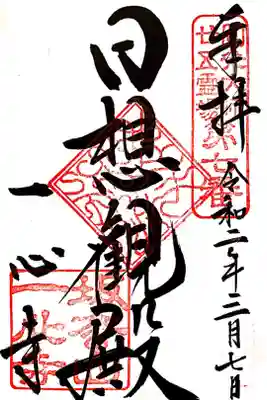 奉拝
令和二年三月七日
日想観殿
一心寺